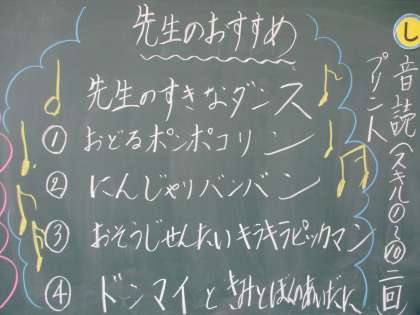 先生のおすすめ
先生のすきなダンス
① おどるポンポコリン
② にんじゃりバンバン
③ おそうじせんたいキラキラピッカマン
④ ドンマイ と きみとぼくのあいだに
し
音読(スキルの~⑩ 二回)
プリント